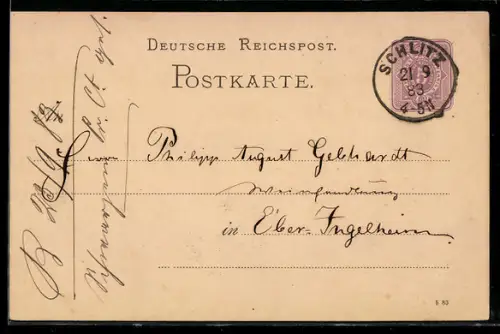 DEUTSCHE REICHSPOST.
POSTKARTE.
SCHLITZ
21 9
83
4-5N
Herrn Philipp August Gebhardt
Weinhandlung
in Ober-Ingelheim
5 83
B 22/9 83